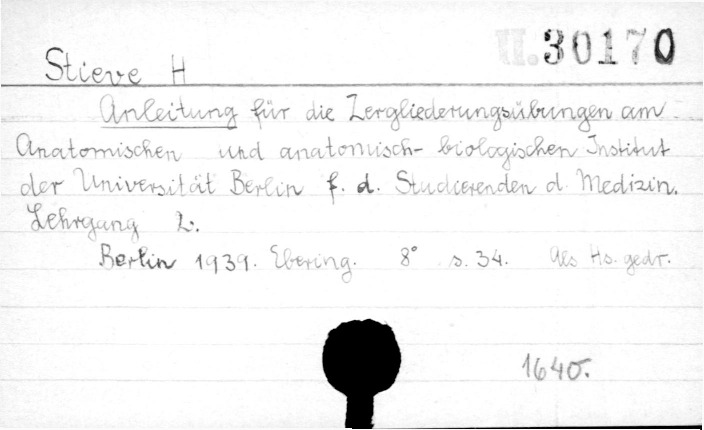 II.30170
Stieve H
Anleitung für die Zergliederungsübungen am
Anatomischen und anatomisch-biologischen Institut
der Universität Berlin f. d. Studierenden d. Medizin.
Lehrgang 2.
Berlin 1939. Ebering. 8° s. 34. Als Hs. gedr.
1640.